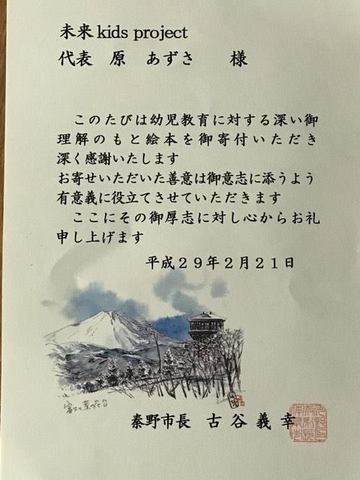 未来kids project
代表 原 あずさ 様
このたびは幼児教育に対する深い御
理解のもと絵本を御寄付いただき
深く感謝いたします
お寄せいただいた善意は御意志に添うよう
有意義に役立てさせていただきます
ここにその御厚志に対し心からお礼
申し上げます
平成29年2月21日
秦野市長 古谷義幸